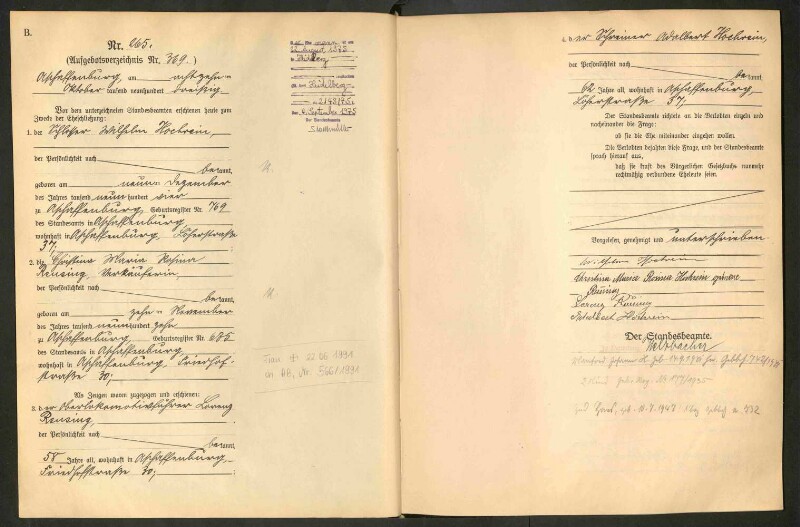 B.
Nr. 265.
(Aufgebotsverzeichnis Nr. 369.)
Aschaffenburg, am achtzehn=
Oktober tausend neunhundert dreißig
Vor dem unterzeichneten Standesbeamten erschienen heute zum
Zwecke der Eheschließung:
1. der Schlosser Wilhelm Hochrein,
der Persönlichkeit nach
be kannt,
geboren am neun= Dezember
des Jahres tausend neun hundert vier
zu Aschaffenburg, Geburtsregister Nr. 769
des Standesamts in Aschaffenburg,
wohnhaft in Aschaffenburg, Löherstraße
37;
2. die Christina Maria Rosina
Rensing, Verkäuferin,
der Persönlichkeit nach
be kannt,
geboren am zehn= November
des Jahres tausend neunhundert zehn
zu Aschaffenburg, Geburtsregister Nr. 685
des Standesamts in Aschaffenburg,
wohnhaft in Aschaffenburg, Friedhof=
straße 30;
Als Zeugen waren zugezogen und erschienen:
3. der Oberlokomotivführer Lorenz
Rensing,
der Persönlichkeit nach
be kannt,
58 Jahre alt, wohnhaft in Aschaffenburg,
Friedhofstraße 30;
August 1975
Heidelberg
Heidelberg
2148/75
September 1975
Der Standesbeamte
Frau † 22.06.1991
Nr. 566/1991
4. der Schreiner Adalbert Hochrein,
der Persönlichkeit nach
be kannt,
62 Jahre alt, wohnhaft in Aschaffenburg,
Löherstraße 37;
Der Standesbeamte richtete an die Verlobten einzeln und
nacheinander die Frage:
ob sie die Ehe miteinander eingehen wollen.
Die Verlobten bejahten diese Frage, und der Standesbeamte
sprach hierauf aus,
daß sie kraft des Bürgerlichen Gesetzbuchs nunmehr
rechtmäßig verbundene Eheleute seien.
Vorgelesen, genehmigt und unterschrieben
Wilhelm Hochrein
Christina Maria Rosina Hochrein geborene
Rensing
Lorenz Rensing
Adalbert Hochrein
Der Standesbeamte.